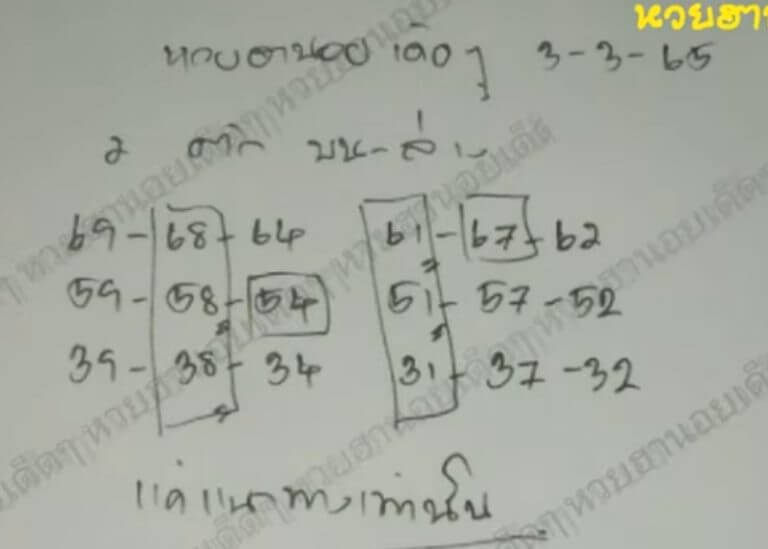 หวยฮา
หวยฮานอย เด็ดๆ 3-3-65
2 ตัว บน-ล่าง
69-68-64 61-67-62
59-58-54 51-57-52
39-38-34 31-37-32
แค่แนวทางเท่านั้น
หวยฮานอยเด็ดๆ หวยฮานอยเด็ดๆ